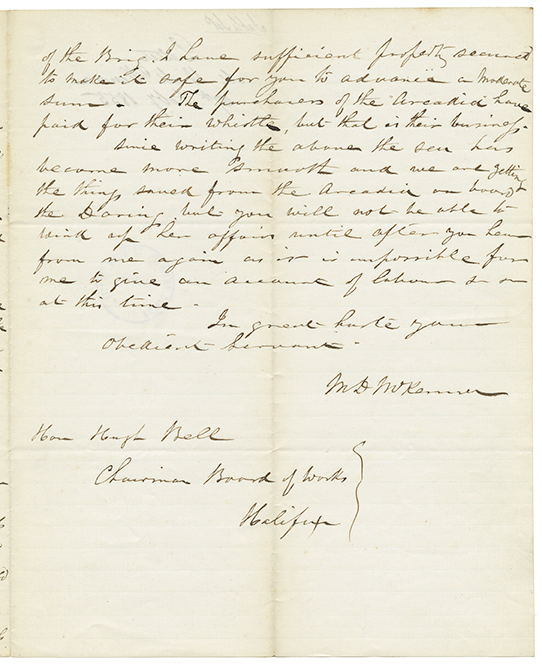 of the Brig. I have sufficient property secured
to make it safe for you to advance a moderate
sum. The purchasers of the Arcadia have
paid for their whistle, but that is their business.
Since writing the above the sea has
become more smooth and we are getting
the things saved from the Arcadia on board
the Daring but you will not be able to
wind up her affairs until after you hear
from me again as it is impossible for
me to give an account of labour &
at this time.
In great haste your
Obedient Servant.
M D McKenna
Hon Hugh Bell
Chairman Board of Works
Halifax